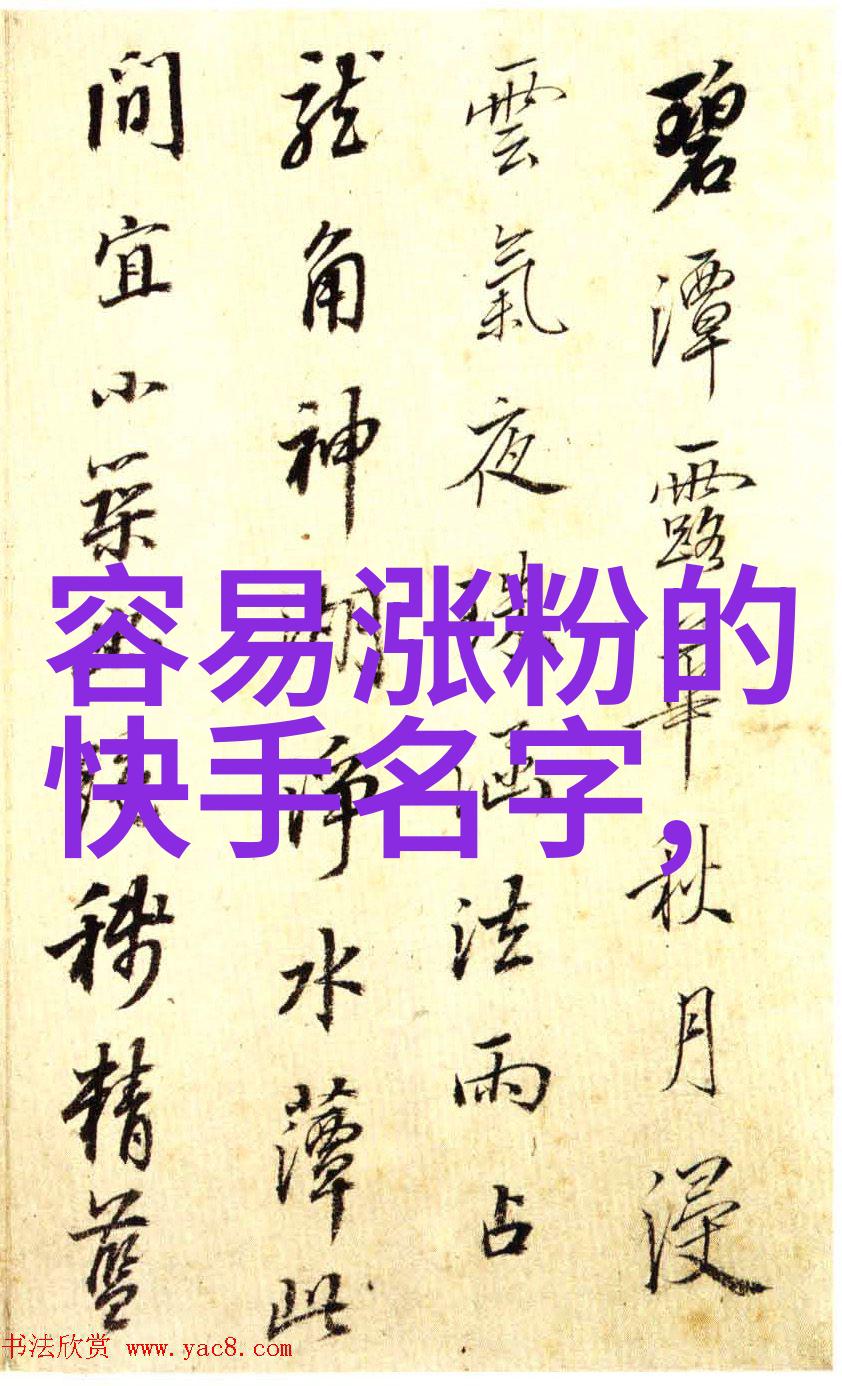 容易涨粉的
快手名字,
碧潭露華秋月浸
雲氣夜涵法雨占
龍角神湖淨水藫此
間宜小築精藍
书法欣赏 www.yac8.com